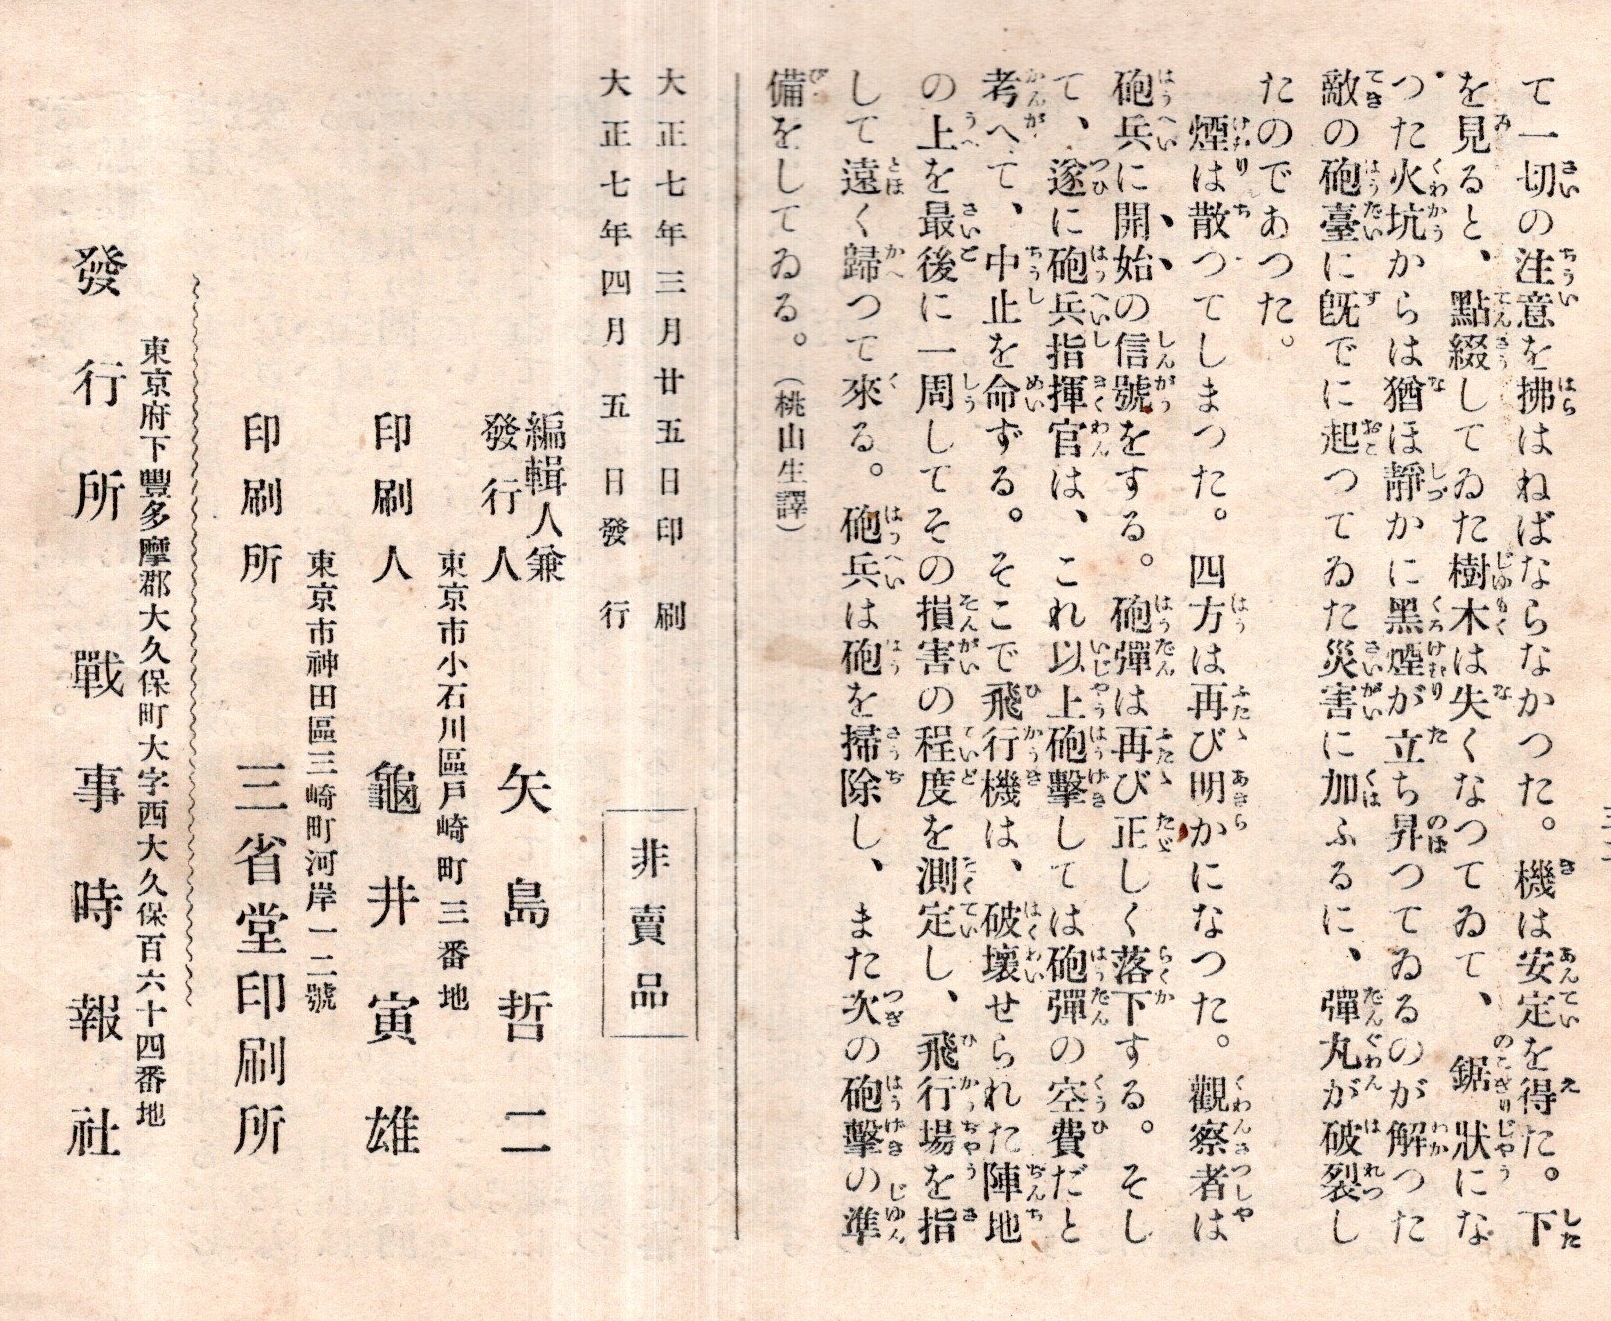 て一切の注意を拂はねばならなかつた。機は安定を得た。下
を見ると、點綴してゐた樹木は失くなつてゐて、鋸狀にな
つた火坑からは猶ほ靜かに黑煙が立ち昇つてゐるのが解つた
敵の砲臺に既でに起つてゐた災害に加ふるに、彈丸が破裂し
たのであつた。
煙は散つてしまつた。四方は再び明かになつた。觀察者は
砲兵に開始の信號をする。砲彈は再び正しく落下する。そし
て、遂に砲兵指揮官は、これ以上砲擊しては砲彈の空費だと
考へて、中止を命ずる。そこで飛行機は、破壞せられた陣地
の上を最後に一周してその損害の程度を測定し、飛行場を指
して遠く歸つて來る。砲兵は砲を掃除し、また次の砲擊の準
備をしてゐる。（桃山生譯）
大正七年三月廿五日印刷
大正七年四月五日發行
非賣品
編輯人兼
發行人 矢島哲二
東京市小石川區戸崎町三番地
印刷人 龜井寅雄
東京市神田區三崎町河岸一二號
印刷所 三省堂印刷所
東京府下豐多摩郡大久保町大字西大久保百六十四番地
發行所 戰事時報社